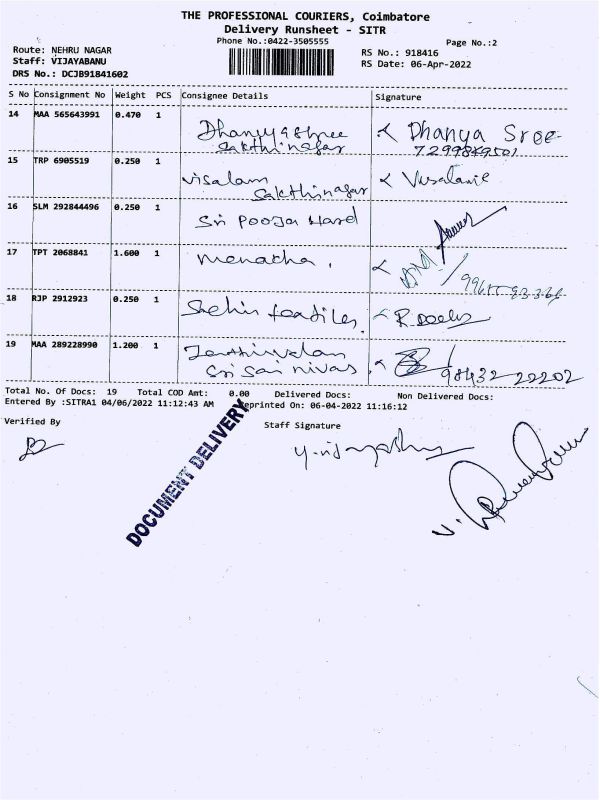 THE PROFESSIONAL COURIERS, Coimbatore
Delivery Runsheet - SITR
Phone No.:0422-3505555
Page No.:2
Route: NEHRU NAGAR
RS No.: 918416
Staff: VIJAYABANU
RS Date: 06-Apr-2022
DRS No.: DCJB91841602
S No Consignment No Weight PCS Consignee Details Signature
14 MAA 565643991 0.470 1 Dhanyashree Dhanya Sree
Sakthinagar 7299849501
15 TRP 6905519 0.250 1 Visalam
Sakthinagar
16 SLM 292844496 0.250 1 Sri Pooja Hard
17 TPT 2068841 1.600 1 Menacha.
18 RJP 2912923 0.250 1
19 MAA 289228990 1.200 1
Sri Sai nivas. 98432 22202
Total No. Of Docs: 19 Total COD Amt: 0.00 Delivered Docs: Non Delivered Docs:
Entered By :SITRA1 04/06/2022 11:12:43 AM Reprinted On: 06-04-2022 11:16:12
Verified By
Staff Signature
DOCUMENT DELIVERY